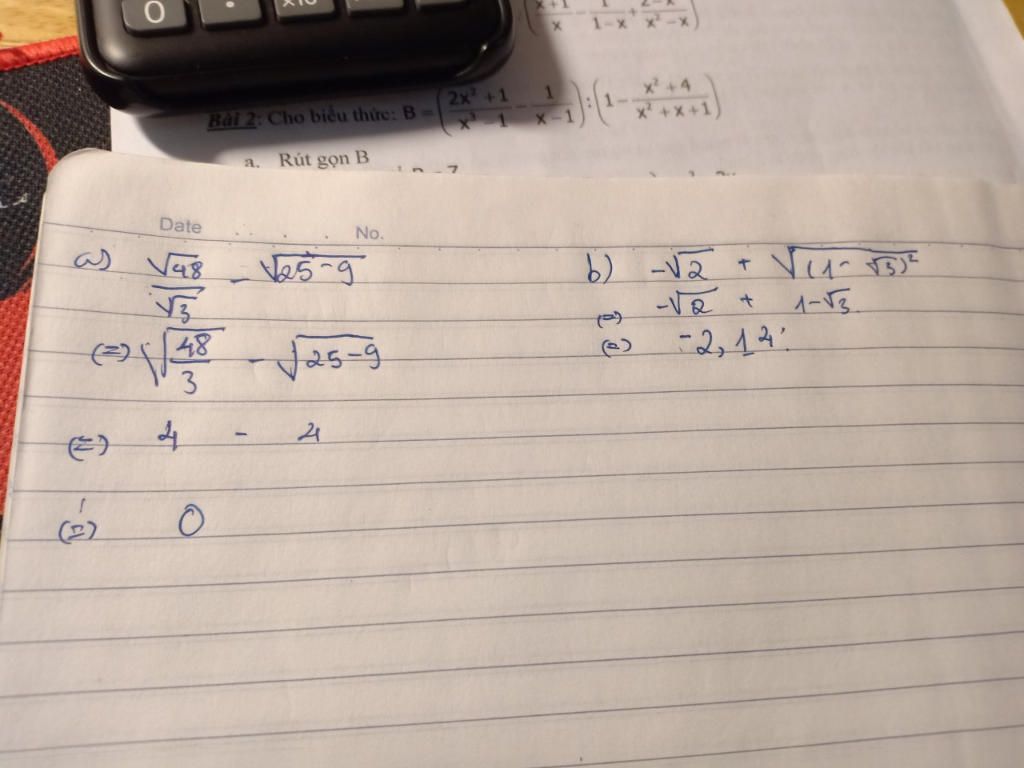 0 . x10
(x+1/x - 1/1-x + 2-x/x²-x)
Bài 2: Cho biểu thức: B = (2x²+1/x³-1 - 1/x-1) : (1 - x²+4/x²+x+1)
a. Rút gọn B
Date No.
a) √48/√3 - √25-9
(=) √48/3 - √25-9
(=) 4 - 4
(=) 0
b) -√2 + √(1-√3)²
(=) -√2 + 1-√3.
(=) -2,14